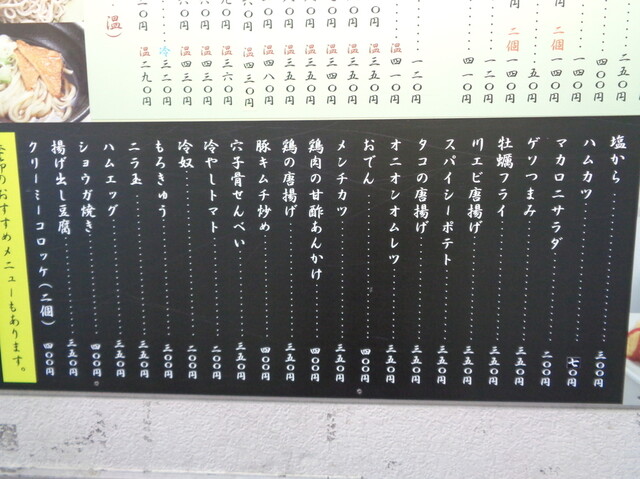 二五〇円
四〇〇円
一四〇円
二個 一四〇円
五〇円
二個 一四〇円
一二〇円
四一〇円
一二〇円
温 四一〇円
温 三五〇円
温 三五〇円
温 三四〇円
温 三五〇円
温 四八〇円
温 四三〇円
温 三六〇円
温 四三〇円
温 四三〇円
冷 三二〇円
温 二九〇円
(温)
塩から 三〇〇円
ハムカツ 七〇円
マカロニサラダ 二〇〇円
ゲソつまみ 三五〇円
牡蠣フライ 三五〇円
川エビ唐揚げ 三五〇円
スパイシーポテト 三五〇円
タコの唐揚げ 三五〇円
オニオンオムレツ 三五〇円
おでん 四〇〇円
メンチカツ 三五〇円
鶏肉の甘酢あんかけ 四〇〇円
鶏の唐揚げ 三五〇円
豚キムチ炒め 四〇〇円
穴子骨せんべい 三五〇円
冷やしトマト 二〇〇円
冷奴 二〇〇円
もろきゅう 三〇〇円
ニラ玉 三五〇円
ハムエッグ 三五〇円
ショウガ焼き 四〇〇円
揚げ出し豆腐 三五〇円
クリーミーコロッケ(二個) 四〇〇円
季節のおすすめメニューもあります。